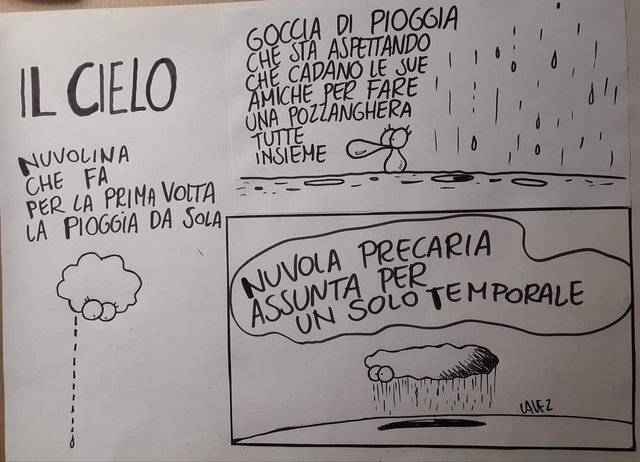 IL CIELO
NUVOLINA
CHE FA
PER LA PRIMA VOLTA
LA PIOGGIA DA SOLA
GOCCIA DI PIOGGIA
CHE STA ASPETTANDO
CHE CADANO LE SUE
AMICHE PER FARE
UNA POZZANGHERA
TUTTE
INSIEME
NUVOLA PRECARIA
ASSUNTA PER
UN SOLO TEMPORALE
LAVEZ